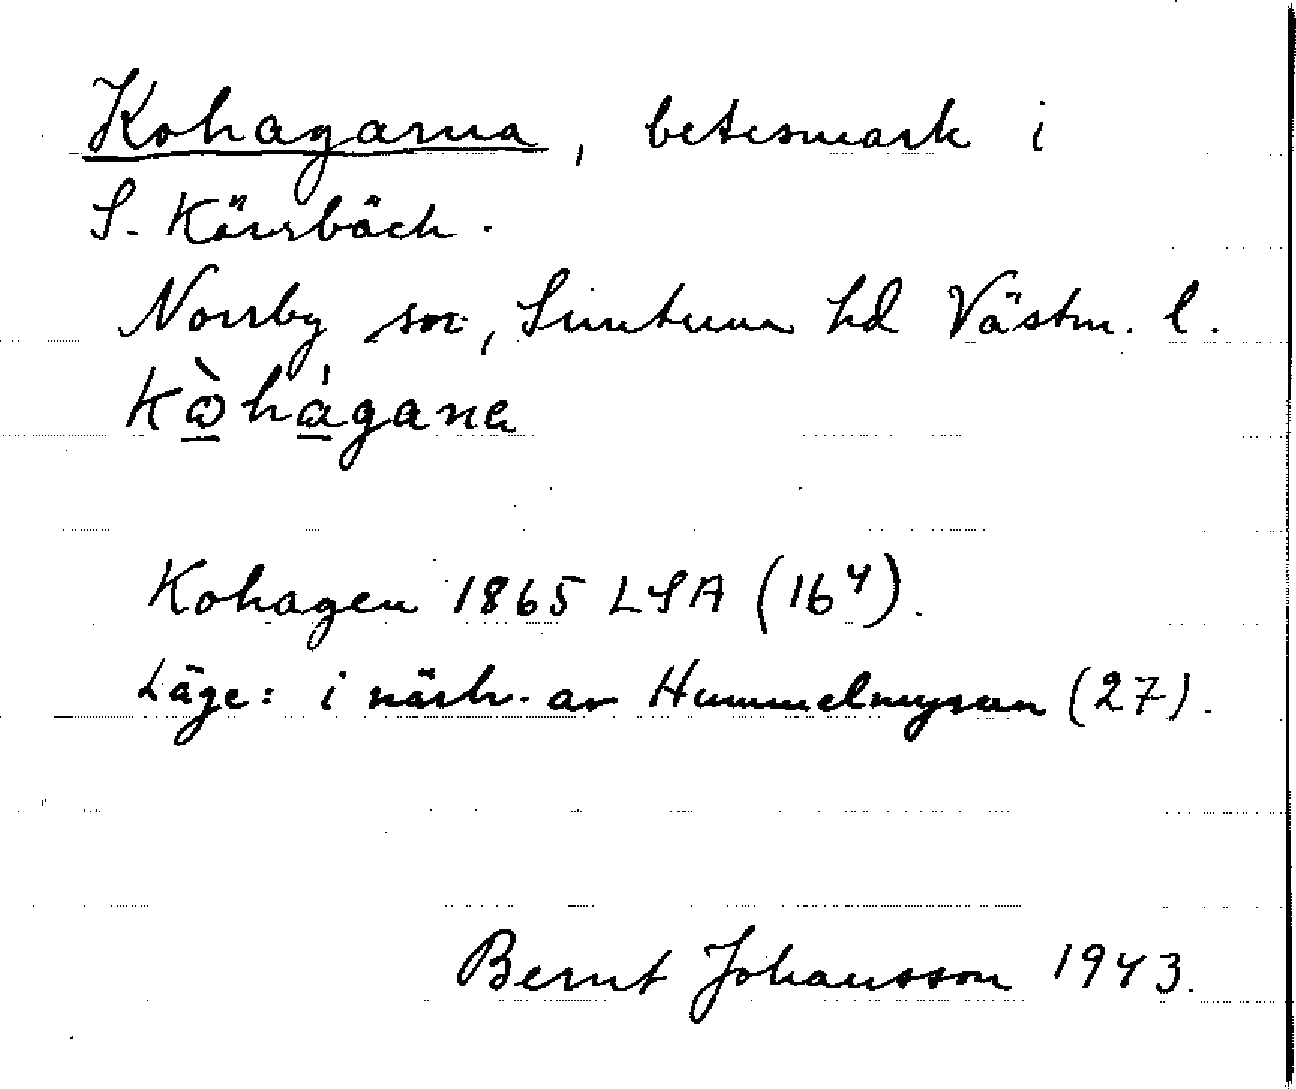 Kohagarna, betesmark i
S. Kärrbäck.
Norrby sn, Simtuna hd Västm. l.
Kohagen 1865 LSA (16⁴).
Läge: i närh. av Hummelmyran (27).
Bernt Johansson 1943.